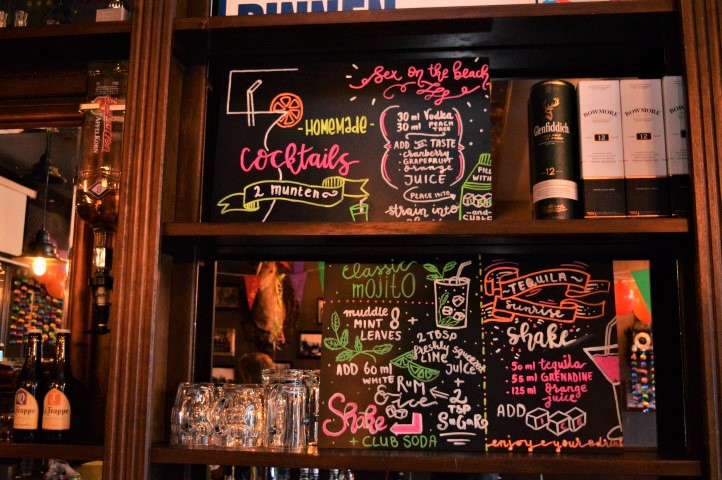 DINNEN
Sex on the Beach
HOMEMADE
Cocktails
2 munten
30 ml Vodka
30 ml PEACH TREE
ADD TO TASTE
- cranberry
- GRAPEFRUIT
- orange
JUICE
PLACE INTO
strain into
WITH
and
SHAKE
Glenfiddich
12
BOWMORE
12
BOWMORE
12
la Trappe
Trappe
classic
mojito
muddle 8
MINT
LEAVES
+
2 TBSP
freshly squeezed
LIME JUICE
ADD 60 ml
WHITE RUM
+
ice
2
TSP
SUGAR
Shake
+ CLUB SODA
TEQUILA
Sunrise
Shake
- 50 ml tequila
- 55 ml GRENADINE
- 125 ml orange
juice
ADD ICE
enjoy your drink